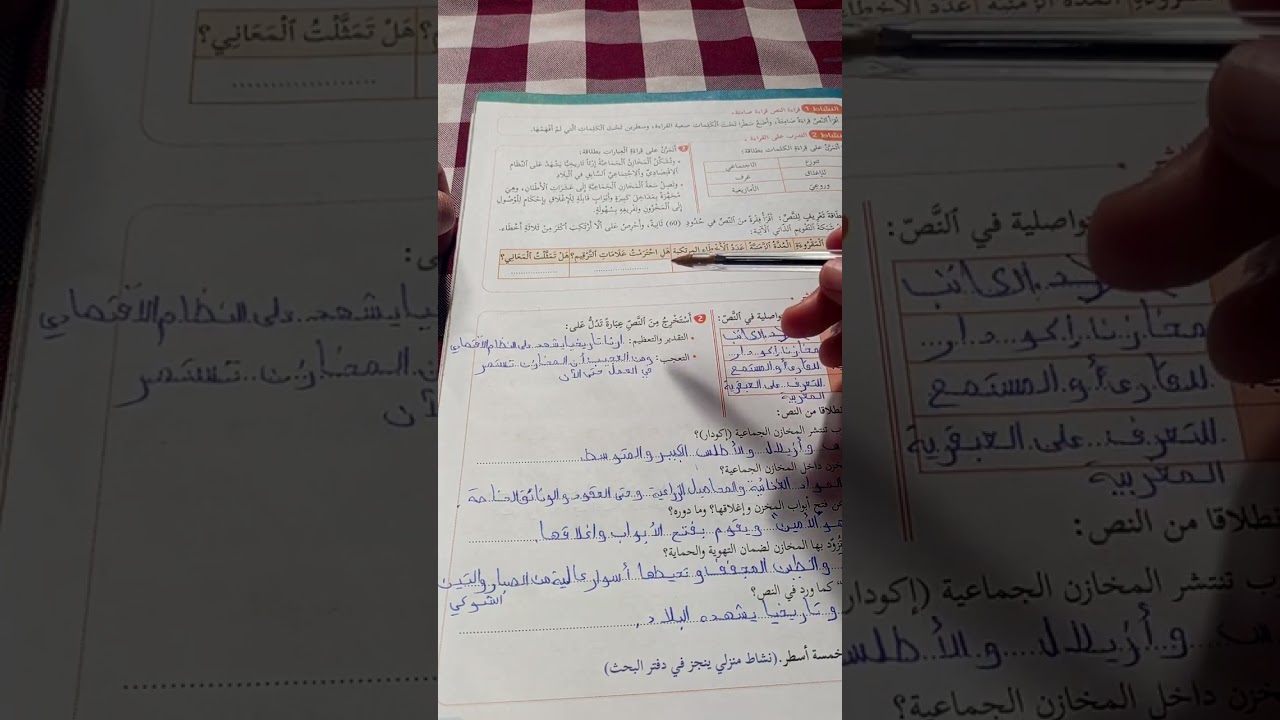 النشاط 1 قراءة النص قراءة صامتة.
أَقْرَأُ ٱلنَّصَّ قِرَاءَةً صَامِتَةً، وَأَضَعُ سَطْرًا تَحْتَ ٱلْكَلِمَاتِ صَعْبَةِ ٱلْقِرَاءَةِ، وَسَطْرَيْنِ تَحْتَ ٱلْكَلِمَاتِ ٱلَّتِي لَمْ أَفْهَمْهَا.
2 التدرب على القراءة
أَتَمَرَّنُ عَلَى قِرَاءَةِ ٱلْكَلِمَاتِ بِطَلَاقَةٍ:
تتوزع الاجتماعي
للإغلاق غرف
وروعي الأمازيغية
2 أَتَمَرَّنُ عَلَى قِرَاءَةِ ٱلْعِبَارَاتِ بِطَلَاقَةٍ:
• وَتُشَكِّلُ ٱلْمَخَازِنُ ٱلْجَمَاعِيَّةُ إِرْثًا تَارِيخِيًّا يَشْهَدُ عَلَى ٱلنِّظَامِ
ٱلِاقْتِصَادِيِّ وَٱلِاجْتِمَاعِيِّ ٱلسَّابِقِ فِي ٱلْبِلَادِ.
• وَتَصِلُ سَعَةُ ٱلْمَخَازِنِ ٱلْجَمَاعِيَّةِ إِلَى عَشَرَاتِ ٱلْأَطْنَانِ، وَهِيَ
مُجَهَّزَةٌ بِمَدَاخِلَ كَبِيرَةٍ وَأَبْوَابٍ قَابِلَةٍ لِلْإِغْلَاقِ بِإِحْكَامٍ لِلْوُصُولِ
إِلَى ٱلْمَخْزُونِ وَتَفْرِيغِهِ بِسُهُولَةٍ.
أَقْرَأُ فِقْرَةً مِنَ ٱلنَّصِّ فِي حُدُودِ (60) ثَانِيَةً، وَأَحْرِصُ عَلَى أَلَّا أَرْتَكِبَ أَكْثَرَ مِنْ ثَلَاثَةِ أَخْطَاءٍ.
شَبَكَةَ ٱلتَّقْوِيمِ ٱلذَّاتِيِّ ٱلْآتِيَةَ:
ٱلْمَقْرُوءَةِ ٱلْمُدَّةُ ٱلزَّمَنِيَّةُ عَدَدُ ٱلْأَخْطَاءِ ٱلْمُرْتَكَبَةِ هَلِ ٱحْتَرَمْتُ عَلَامَاتِ ٱلتَّرْقِيمِ؟ هَلْ تَمَثَّلْتُ ٱلْمَعَانِي؟
تواصلية في ٱلنَّصِّ:
الكاتب
مخازننا إكودار
للقارئ أو المستمع
للتعرف على العبقرية
المغربية
2 أَسْتَخْرِجُ مِنَ ٱلنَّصِّ عِبَارَةً تَدُلُّ عَلَى:
• التقدير والتعظيم: إرثا تاريخيا يشهد على النظام الاقتصادي
• التعجب: ومن العجيب أن المخازن تستمر
في العمل حتى الآن
نطلاقا من النص:
ب تنتشر المخازن الجماعية (إكودار)؟
وأزيلال والأطلس الكبير والمتوسط.
خزن داخل المخازن الجماعية؟
المواد الغذائية والمحاصيل الزراعية وحتى العقود والوثائق الخاصة.
فتح أبواب المخزن وإغلاقها؟ وما دوره؟
هو "الأمين" ويقوم بفتح الأبواب وإغلاقها.
تُزَوَّد بها المخازن لضمان التهوية والحماية؟
والطين المجفف وتحيطها أسوار عالية من الصبار والتين
الشوكي
" كما ورد في النص؟
وتاريخيا يشهده البلاد.
خمسة أسطر. (نشاط منزلي ينجز في دفتر البحث)